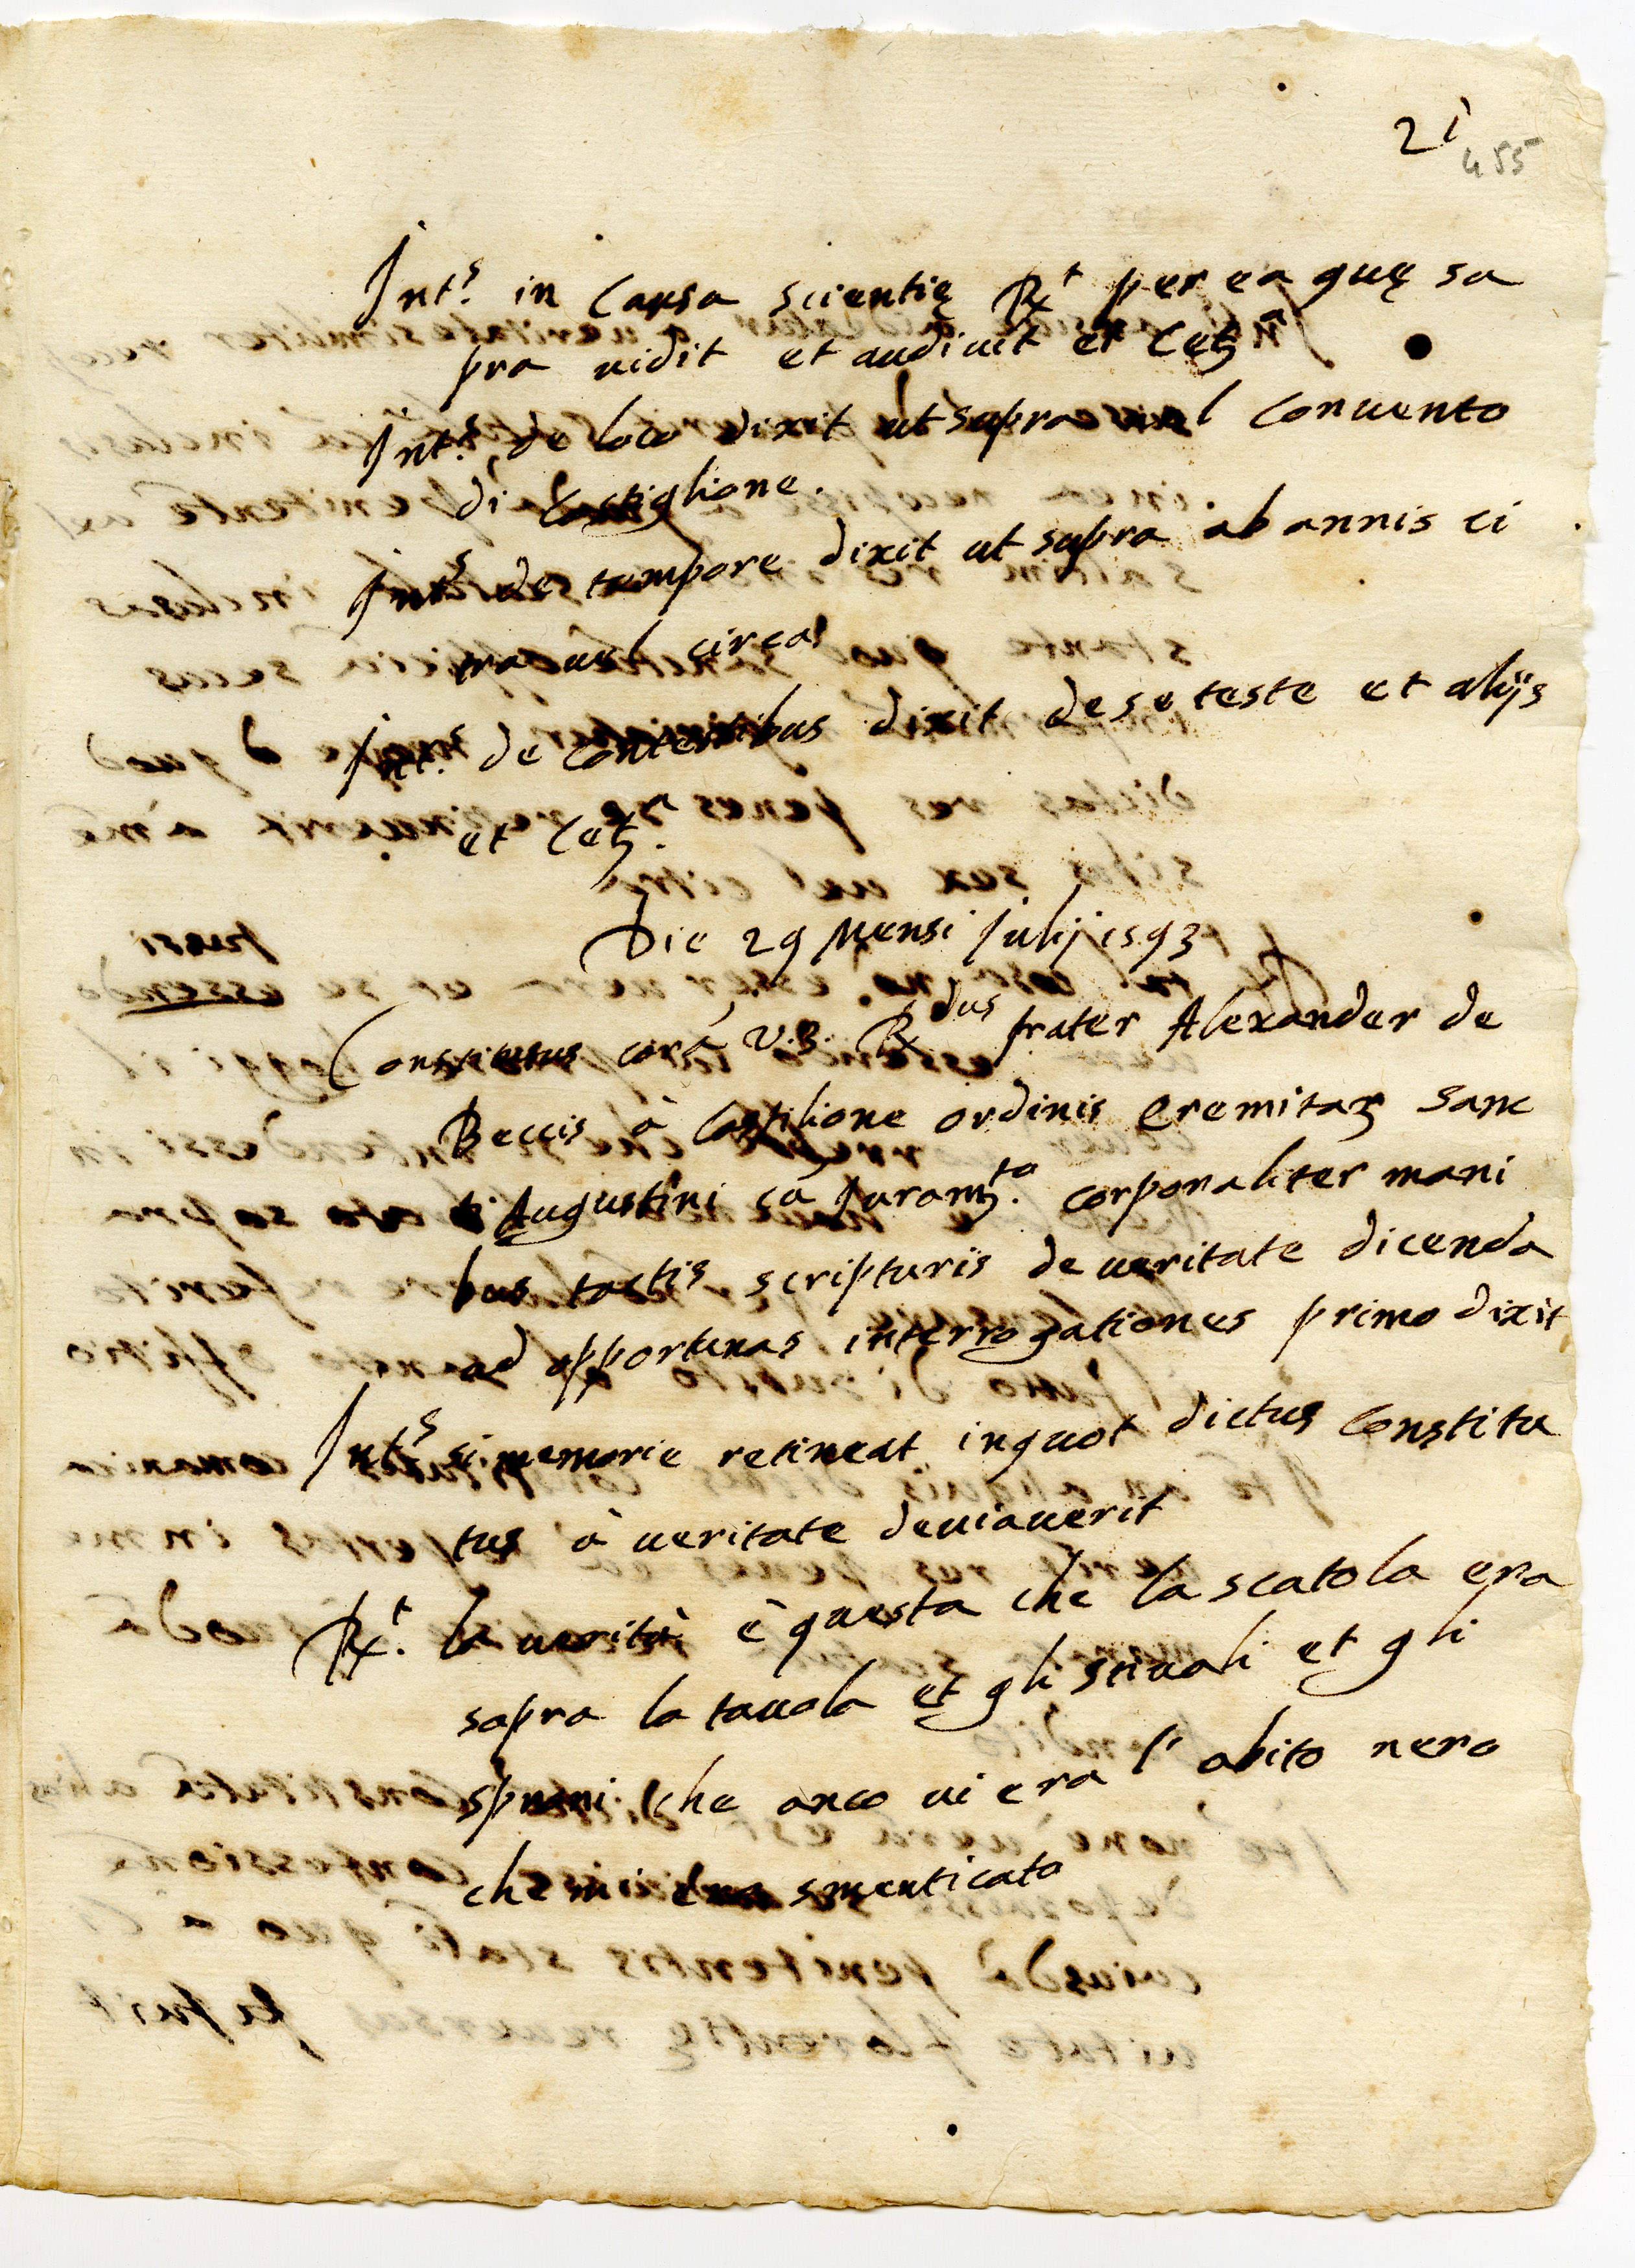 21
455
Int.s in causa scientię Rt per ea quę su
pra uidit et audiuit et cętą
Int.s de loco dixit ut supra nel conuento
di Castiglione.
Int.s de tempore dixit ut supra ab annis ci
tra uel circa
Int.s de contestibus dixit de se teste et alijs
et cęt.
Die 29 Mensi Julij 1593
Constitutus corā V.R. Rdus frater Alexander de
Beccis à Castilione ordinis eremitaꝝ sanc
ti Augustini cū Juramto. corporaliter mani
bus tactis scripturis de ueritate dicenda
ad opportunas interrogationes primo dixit
Int.s si memorie retineat in quot dictus constitu
tus à ueritate deuiauerit
Rt. la uerità è questa che la scatola era
sopra la tauola et gli stiuali et gli
sproni che anco ui era l' abito nero
che mi ero smenticato